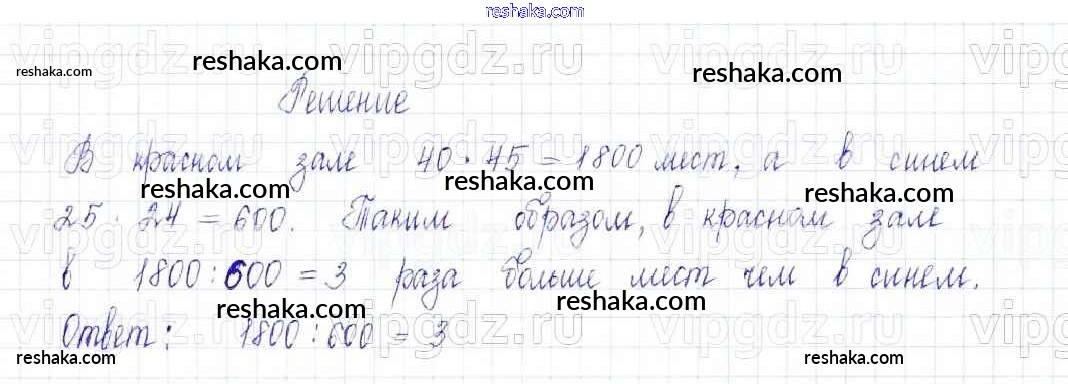 reshaka.com
vipgdz.ru
reshaka.com reshaka.com reshaka.com
Решение
В красном зале 40 · 45 = 1800 мест, а в синем
reshaka.com reshaka.com reshaka.com
25 · 24 = 600. Таким образом, в красном зале
в 1800 : 600 = 3 раза больше мест чем в синем.
reshaka.com reshaka.com reshaka.com
Ответ: 1800 : 600 = 3
reshaka.com reshaka.com reshaka.com